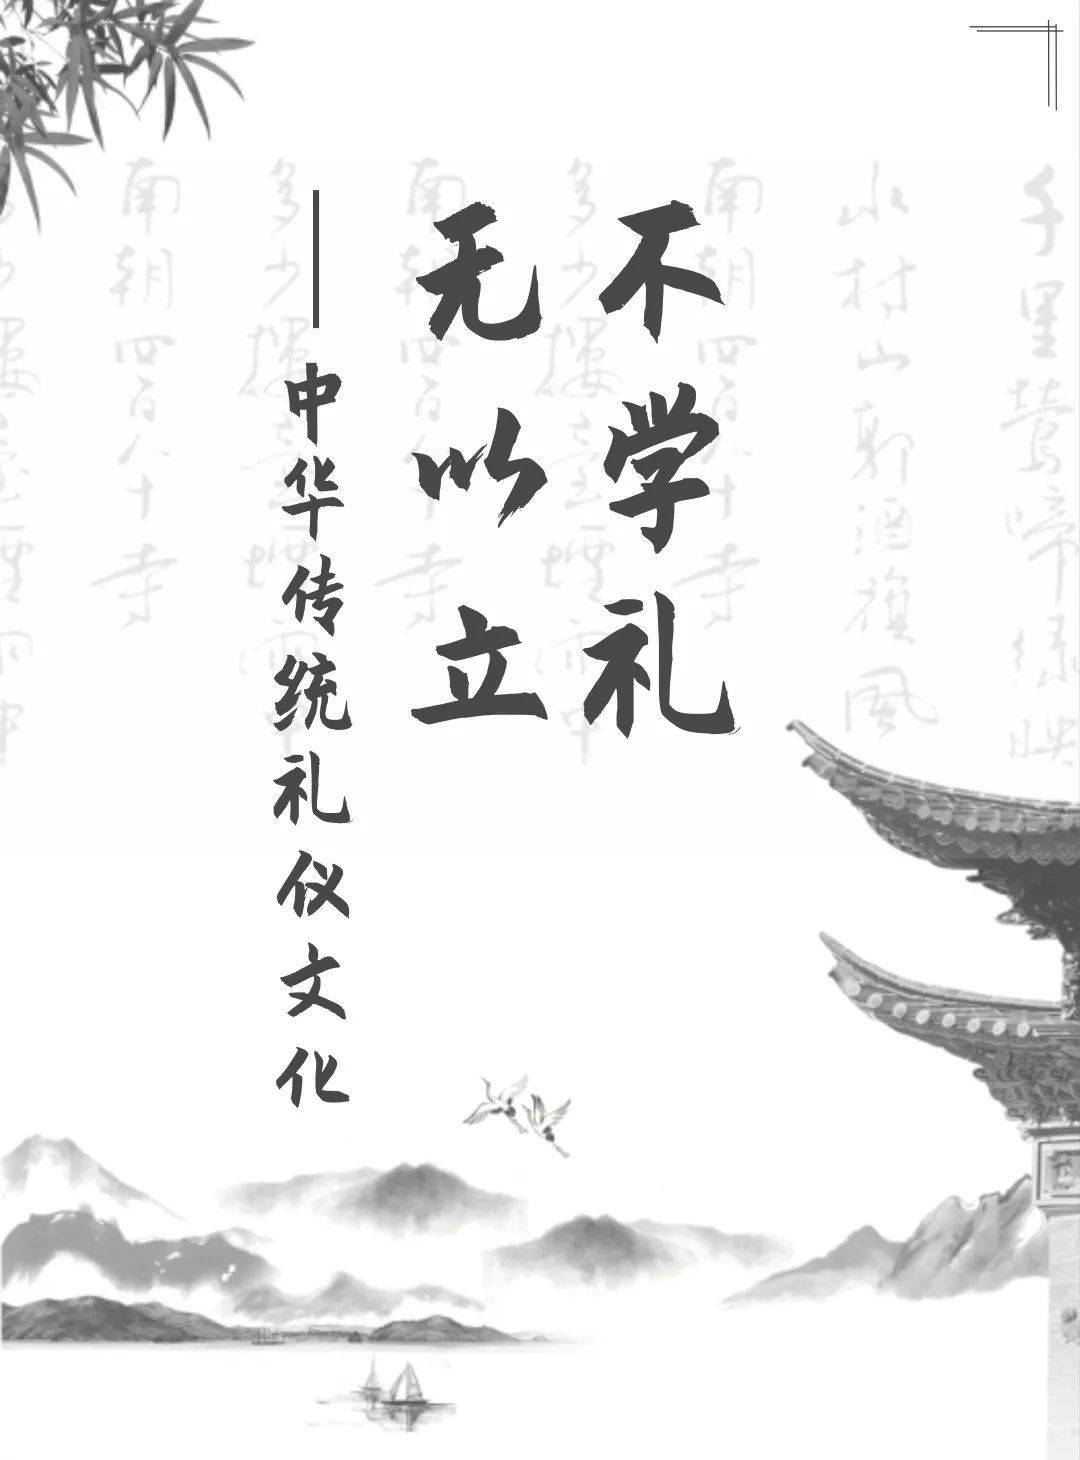 不学礼
无以立
——中华传统礼仪文化
千里莺啼绿映
水村山郭酒旗风
南朝四百八十寺
多少楼台烟雨中
南朝四百八十寺
多少楼台烟雨中
南朝四百八十寺
多少楼台烟雨中